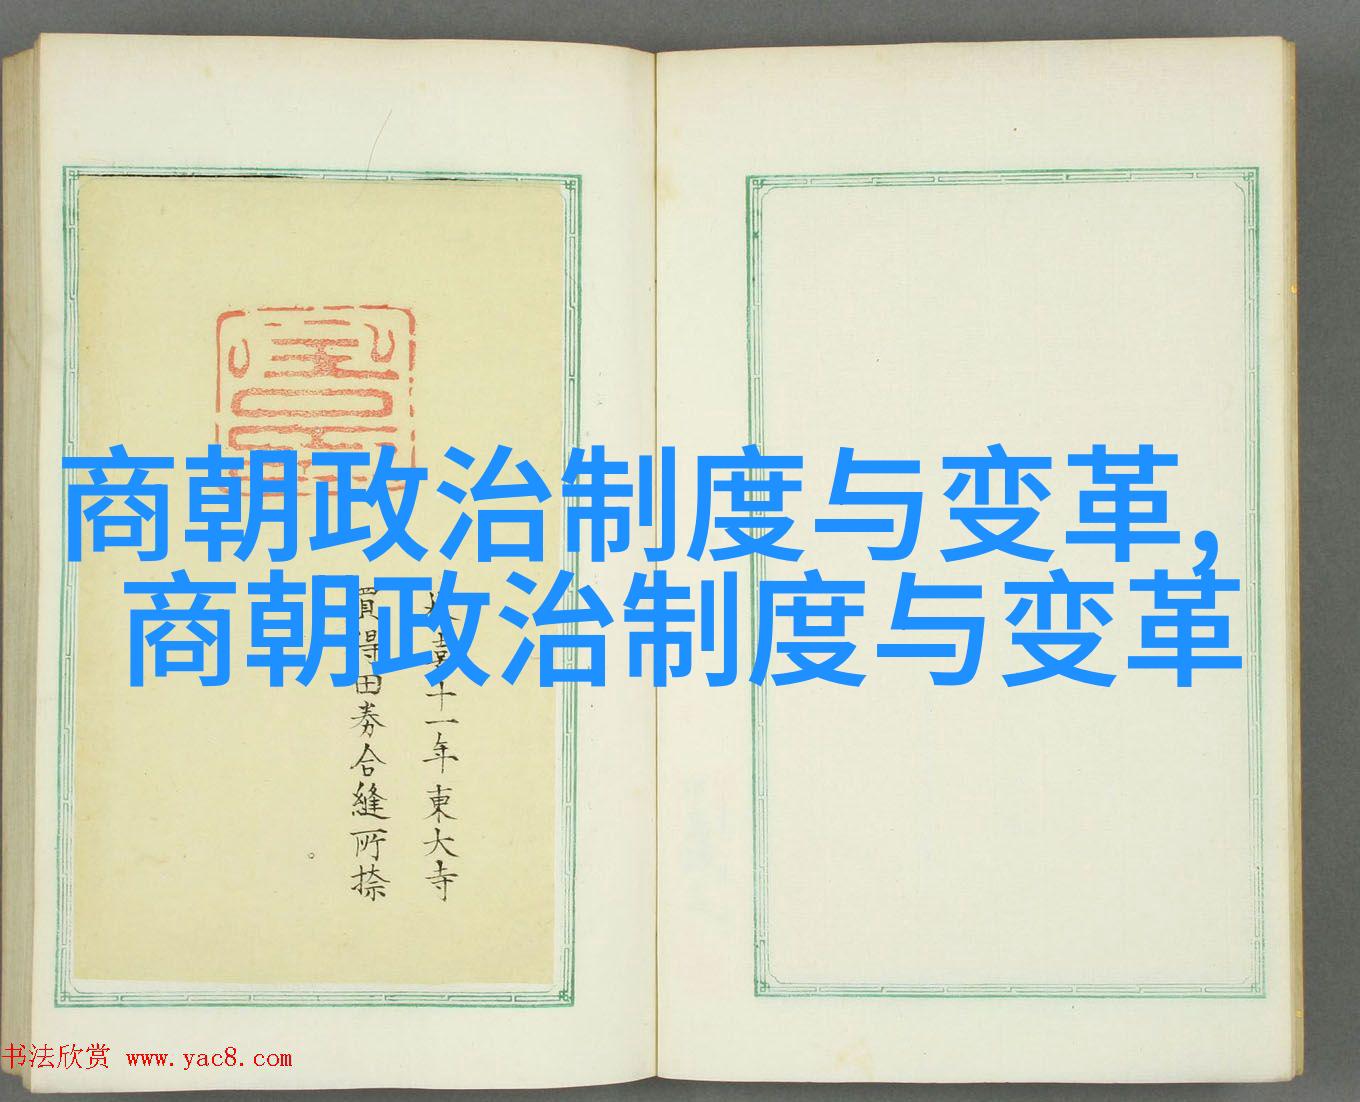 商朝政治制度与变革,
商朝政治制度与变革
喜十一年東大寺
買得田券合縫所捺
书法欣赏 www.yac8.com